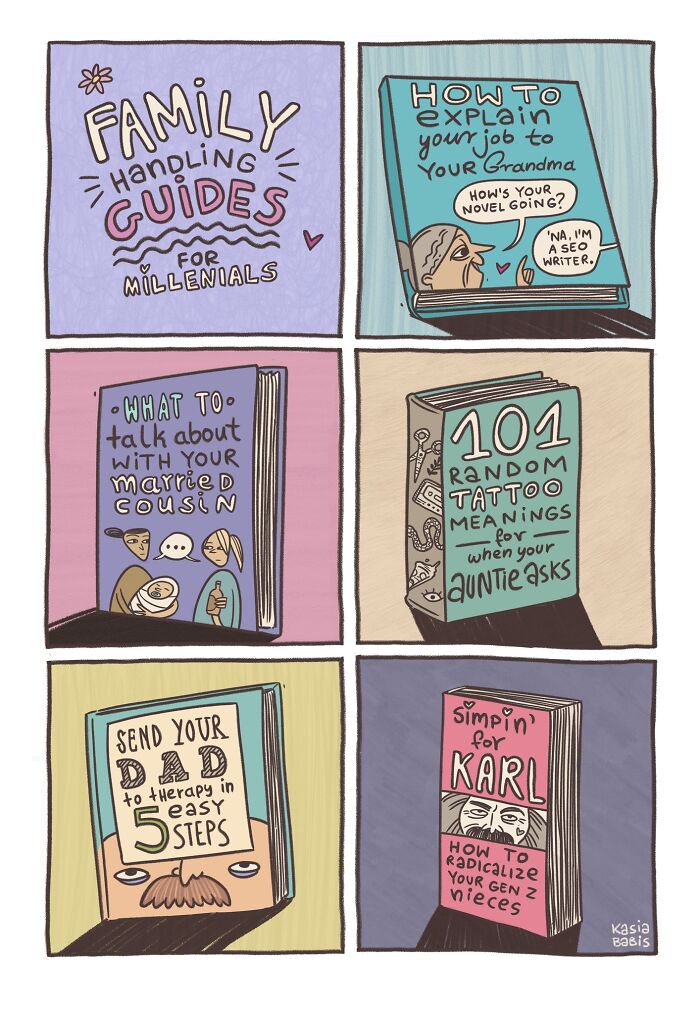 FAMiLY
HANDLiNG
GUiDES
FOR
MiLLENIALS
HOW TO
EXPLAiN
your job to
YOUR Grandma
HOW'S YOUR
NOVEL GOING?
'NA, I'M
A SEO
WRITER.
•WHAT TO•
talk about
WiTH YOUR
marrieD
COUSiN
...
101
RANDOM
TATTOO
MEANiNGS
for
when your
AUNTiE ASKS
SEND YOUR
DAD
to tHERAPY in
5 eASY
STEPS
Simpin'
for
KARL
HOW TO
RaDiCALiZE
YOUR GEN Z
NieCeS
Kasia
BaBiS